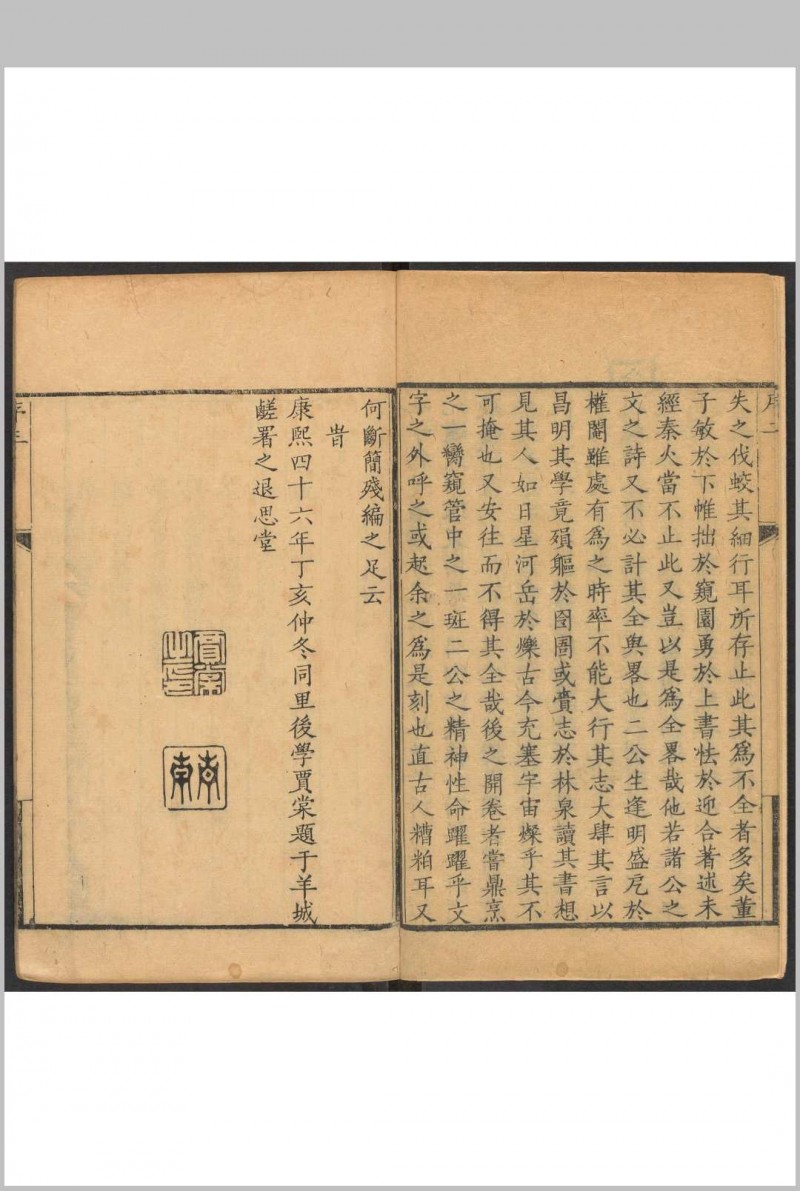 序二
失之伐蛟其細行耳所存止此其為不全者多矣董
子敏於下帷拙於窺園勇於上書怯於迎合著述未
經秦火當不止此又豈以是為全畧哉他若諸公之
文之詩又不必計其全與畧也二公生逢明盛厄於
權閹雖處有為之時率不能大行其志大肆其言以
昌明其學竟殞軀於囹圄或賫志於林泉讀其書想
見其人如日星河岳於爍古今充塞宇宙燦乎其不
可掩也又安往而不得其全哉後之開卷者嘗鼎烹
之一臠窺管中之一斑二公之精神性命躍躍乎文
字之外呼之或起余之為是刻也直古人糟粕耳又
何斷簡殘編之足云
旹
康熙四十六年丁亥仲冬同里後學賈棠題于羊城
鹺署之退思堂
賈棠之印
青南
序三